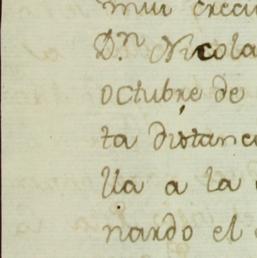 mui creci
D.n Nicola
Octubre de
ta distanc
lla a la
nardo el